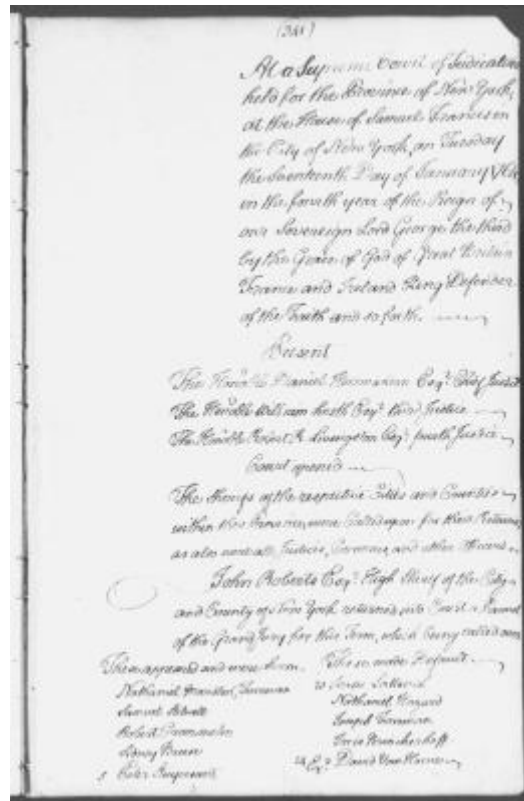 At a Supreme Court of Judicature
held for the Province of New York,
at the House of Samuel Francis in
the City of New York, on Tuesday
the Seventeenth Day of January
in the fourth year of the Reign of
our Sovereign Lord George the third
by the Grace of God of Great Britain
France and Ireland King Defender
of the Faith and so forth.
Present
The Honble Daniel Horsmanden Esqr. Chief Justice
The Honble William Smith Esqr. third Justice
The Honble Robert R Livingston Esqr. fourth Justice
Court opened
The Sheriffs of the respective Cities and Counties
within this Province were Called upon for their Returns
as also were all Justices, Coroners, and other Officers
John Roberts Esqr. High Sheriff of the City
and County of New York returned into Court a Pannel
of the Grand Jury for this Term, which being called over
These appeared and were sworn. These made Default.
Nathaniel Foreman
Samuel
Robert
Sidney Breese
5 Peter
10
Nathaniel Hazard
Joseph
14 David Van Horne